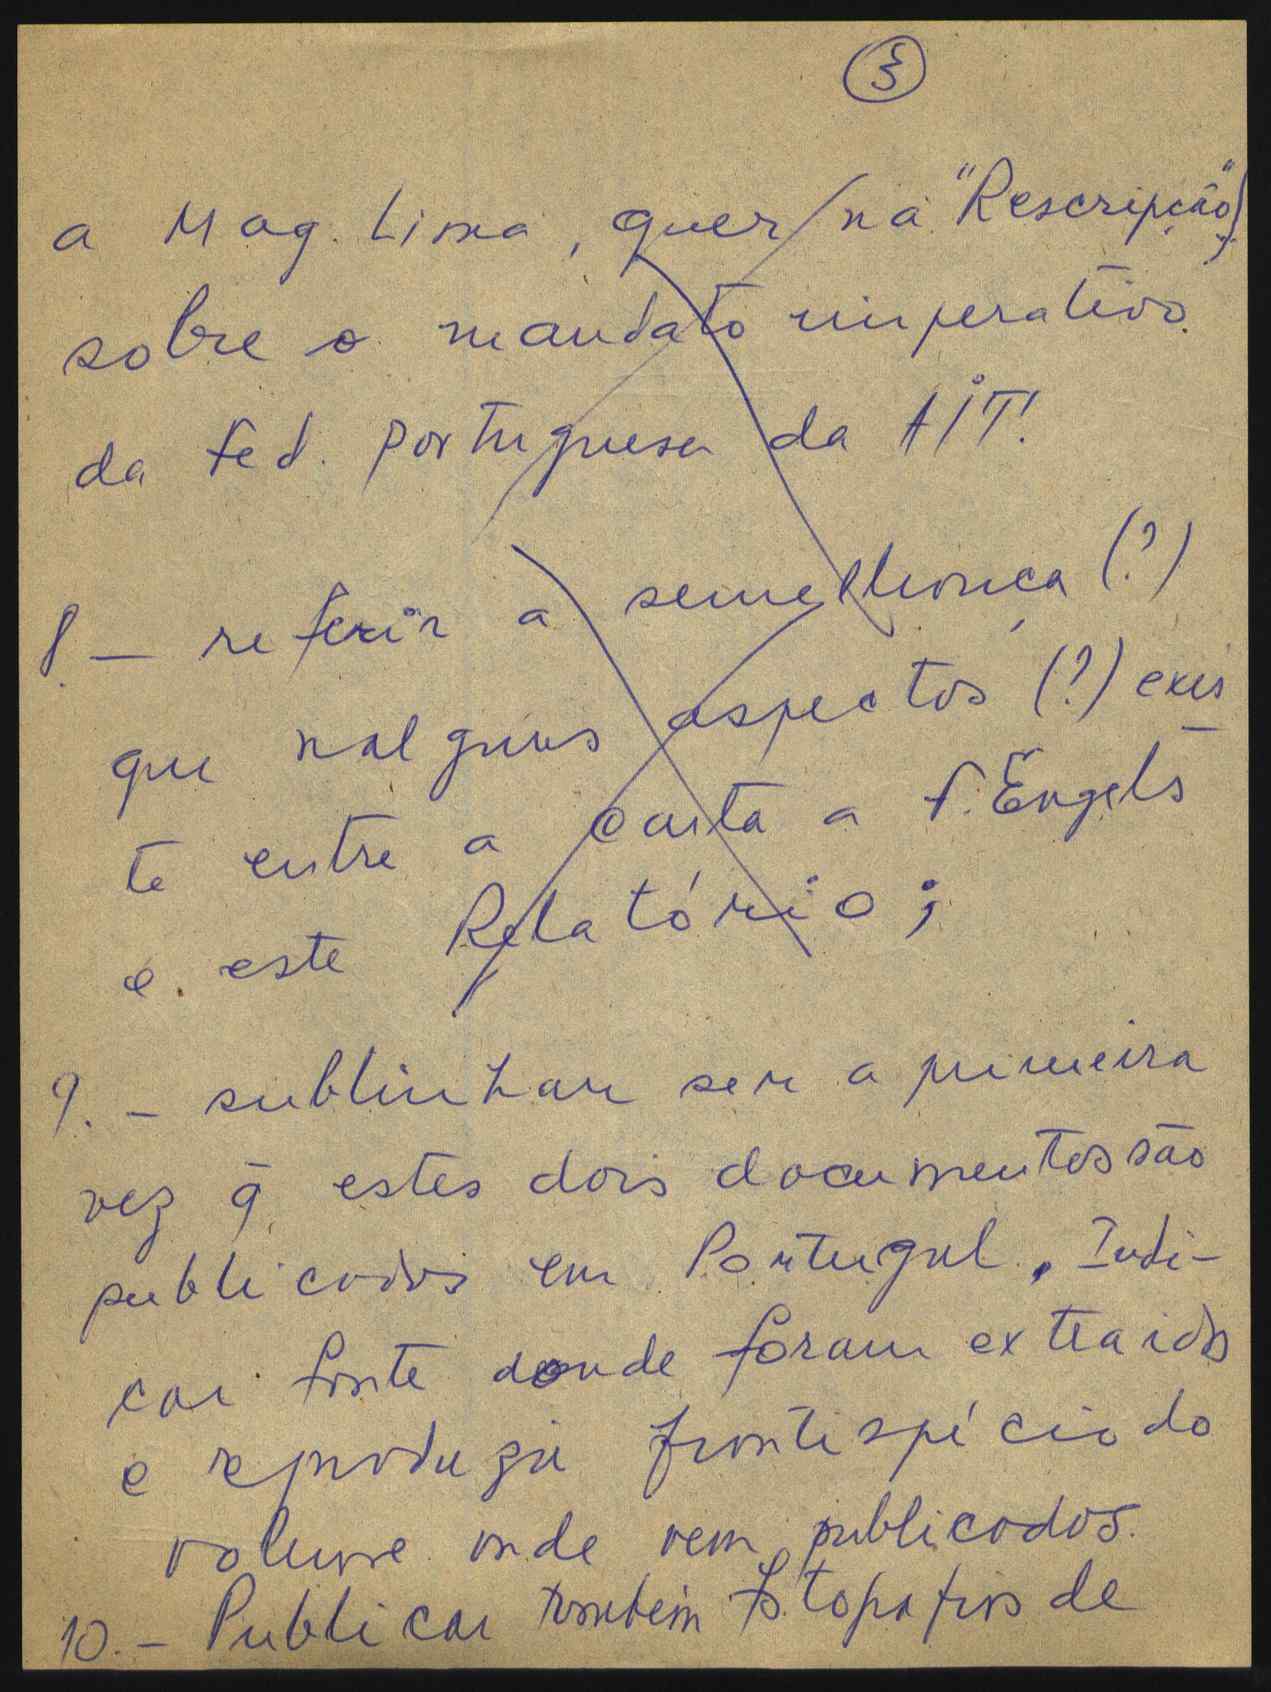 3
a Mag. Lima, quer na "Rescripção"
sobre o mandato imperativo
da Fed. portuguesa da AIT!
8. — referir a semelhança (?)
que nalguns aspectos (?) exis
te entre a carta a F. Engels
e este Relatório;
9. — sublinhar ser a primeira
vez q̃ estes dois documentos são
publicados em Portugal. Indi-
car fonte donde foram extraidos
e reproduzir frontispício do
volume onde vem publicados.
10. — Publicar também fotografias de